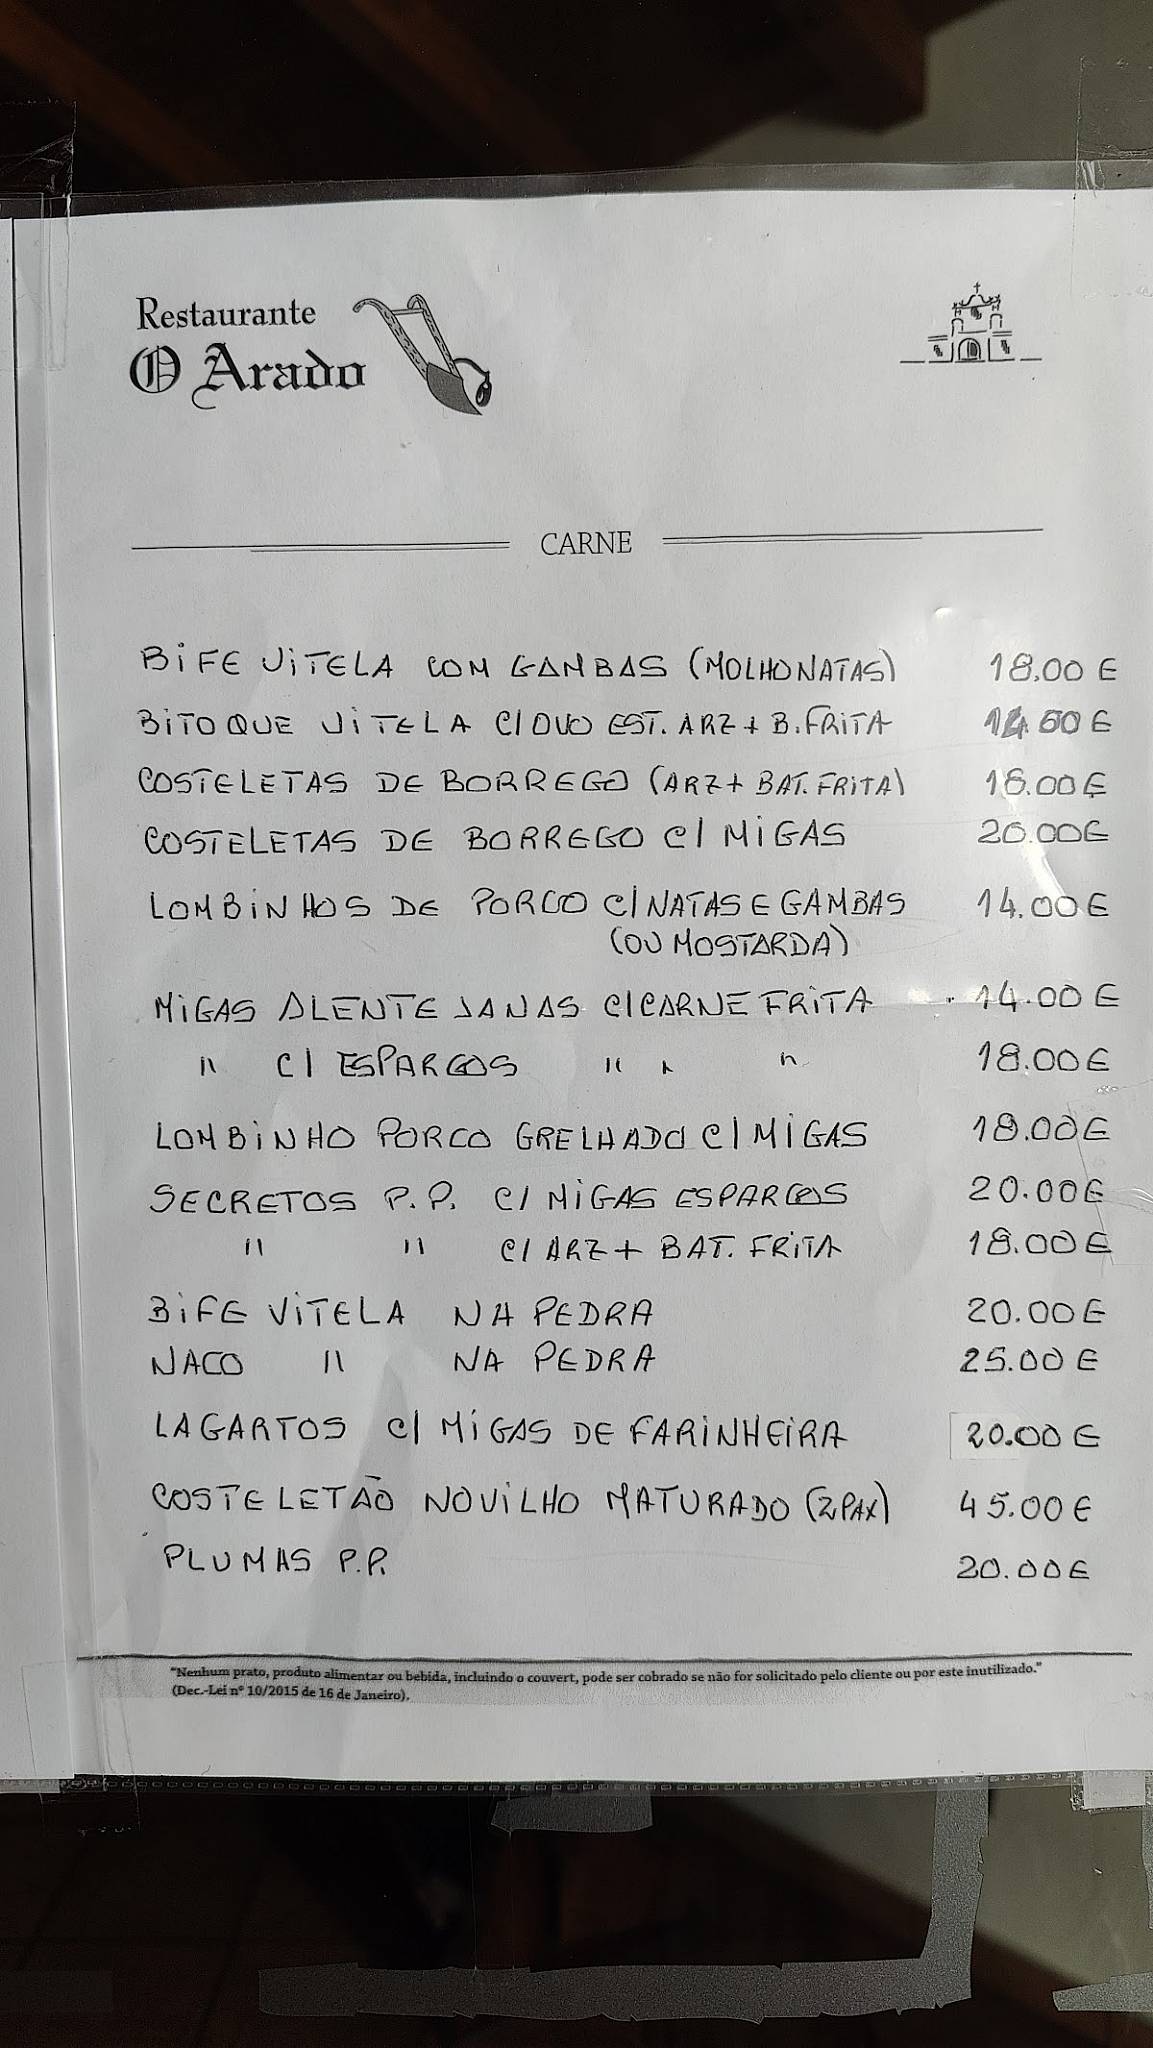 Restaurante
O Arado
CARNE
BIFE VITELA COM GAMBAS (MOLHO NATAS) 18.00 €
BITOQUE VITELA C/ OVO EST. ARZ + B. FRITA 14.50 €
COSTELETAS DE BORREGO (ARZ + BAT. FRITA) 18.00 €
COSTELETAS DE BORREGO C/ MIGAS 20.00 €
LOMBINHOS DE PORCO C/ NATAS E GAMBAS 14.00 €
(OU MOSTARDA)
MIGAS ALENTEJANAS C/ CARNE FRITA 14.00 €
" C/ ESPARGOS " " " 18.00 €
LOMBINHO PORCO GRELHADO C/ MIGAS 18.00 €
SECRETOS P.P. C/ MIGAS ESPARGOS 20.00 €
" " C/ ARZ + BAT. FRITA 18.00 €
BIFE VITELA NA PEDRA 20.00 €
NACO " NA PEDRA 25.00 €
LAGARTOS C/ MIGAS DE FARINHEIRA 20.00 €
COSTELETÃO NOVILHO MATURADO (2 PAX) 45.00 €
PLUMAS P.P. 20.00 €
"Nenhum prato, produto alimentar ou bebida, incluindo o couvert, pode ser cobrado se não for solicitado pelo cliente ou por este inutilizado."
(Dec.-Lei nº 10/2015 de 16 de Janeiro).